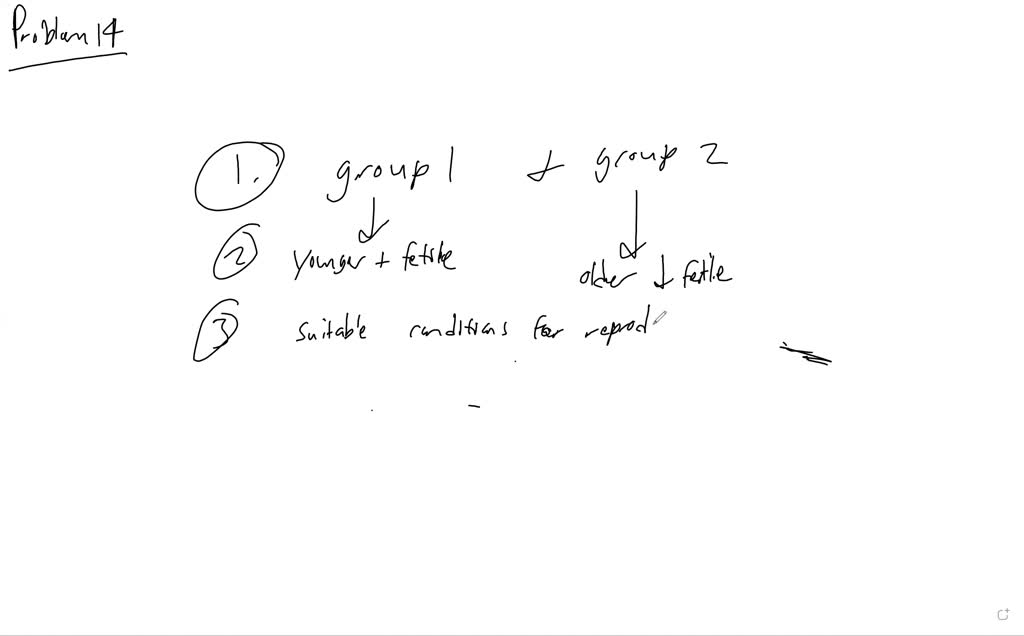 Problem 14
1. group 1 + group 2
2 younger + fetile
older ↓ fertile
3 suitable conditions for reprod